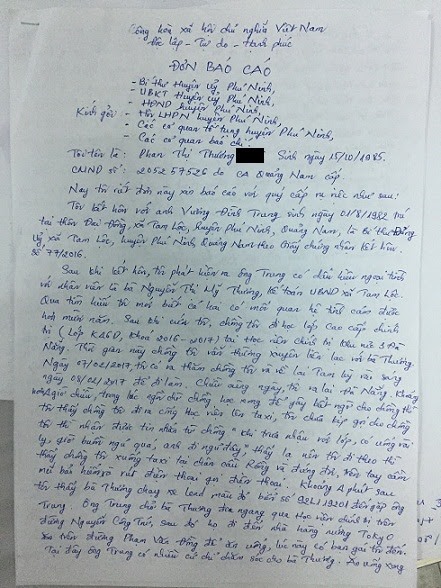 Cộng hòa xã hội chủ nghĩa Việt Nam
Độc lập - Tự do - Hạnh phúc
ĐƠN BÁO CÁO
- Bí thư Huyện ủy Phú Ninh,
- UBKT Huyện ủy Phú Ninh,
- HĐND huyện Phú Ninh,
Kính gởi: - Hội LHPN huyện Phú Ninh,
- Các cơ quan tố tụng huyện Phú Ninh,
- Các cơ quan báo chí.
Tôi tên là: Phan Thị Phương Sinh ngày 15/10/1985.
CMND số: 205257526 do CA Quảng Nam cấp.
Nay tôi viết đơn này xin báo cáo với quý cấp vụ việc như sau:
Tôi kết hôn với anh Vương Đình Trung sinh ngày 01/8/1982 trú
tại thôn Đại Đồng, xã Tam Lộc, huyện Phú Ninh, Quảng Nam, là Bí thư Đảng
ủy xã Tam Lộc, huyện Phú Ninh, Quảng Nam theo Giấy chứng nhận kết hôn
số 77/2016.
Sau khi kết hôn, tôi phát hiện ra ông Trung có dấu hiệu ngoại tình
với nhân viên là bà Nguyễn Thị Mỹ Thương, Kế toán UBND xã Tam Lộc.
Qua tìm hiểu thì mới biết cả hai có mối quan hệ tình cảm được
hơn mười năm. Sau khi cưới tôi, chồng tôi đi học lớp Cao cấp chính
trị (Lớp KA6D, Khóa 2016-2017) tại Học viện chính trị khu vực 3 Đà
Nẵng. Thời gian này chồng tôi vẫn thường xuyên liên lạc với bà Thương.
Ngày 07/02/2017 tôi có ra thăm chồng tôi và về lại Tam kỳ vào sáng
ngày 08/02/2017 để đi làm. Chiều cùng ngày, tôi ra lại Đà Nẵng. Khoảng
giờ chiều, trong lúc ngồi chờ chồng học xong để gây bất ngờ cho chồng thì
tôi thấy chồng tôi đi ra cổng học viện lên taxi, tôi chưa kịp gọi cho chồng
tôi thì nhận được tin nhắn từ chồng "khi trưa nhậu với lớp, có uống vài
ly, giờ buồn ngủ quá, anh đi ngủ đây", thấy lạ nên tôi đi theo thì
thấy chồng tôi xuống taxi tại chân cầu Rồng và đứng đợi, trên tay cầm
mũ bảo hiểm và rút điện thoại gọi điện thoại. Khoảng 4 phút sau
tôi thấy bà Thương chạy xe lead màu đỏ biển số 92L1 19201 đến gặp ông
Trung. Ông Trung chở bà Thương đến ngang qua Học viện chính trị trên
đường Nguyễn Công Trứ, sau đó họ đi đến nhà hàng nướng Tokyo
xin trên đường Phạm Văn Đồng để ăn uống, lúc này có bạn gái tôi đến.
Tại đây ông Trung có nhiều cử chỉ chăm sóc cho bà Thương. Ăn uống xong